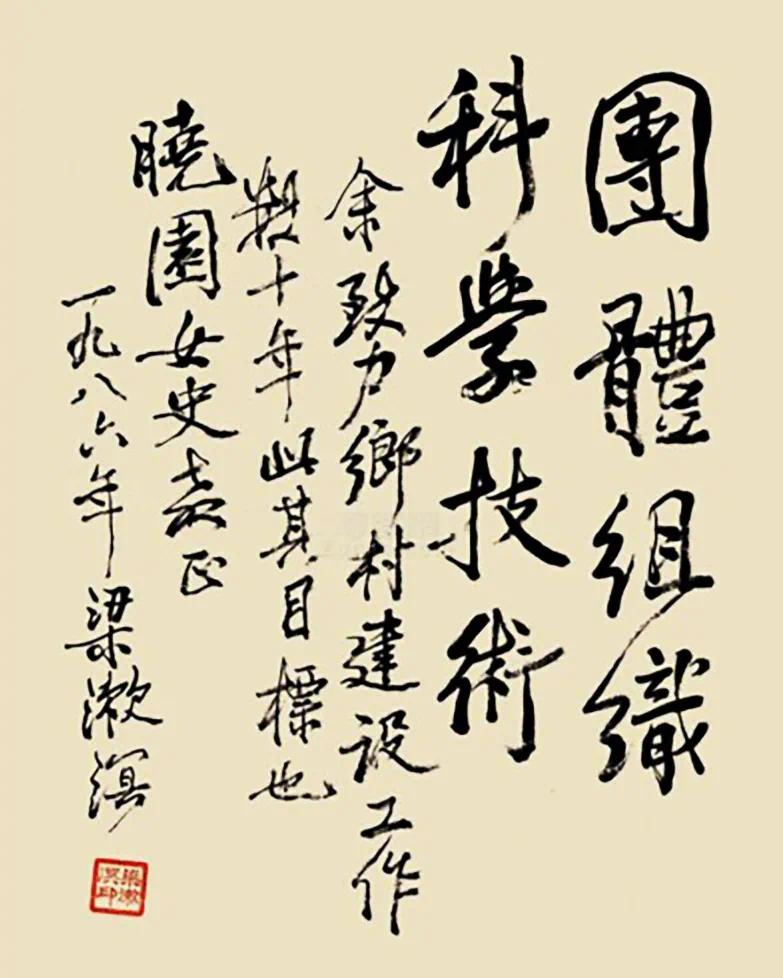 團體組織
科學技術
余致力鄉村建設工作
數十年此其目標也
曉園女史正
一九八六年 梁漱溟
梁漱溟印